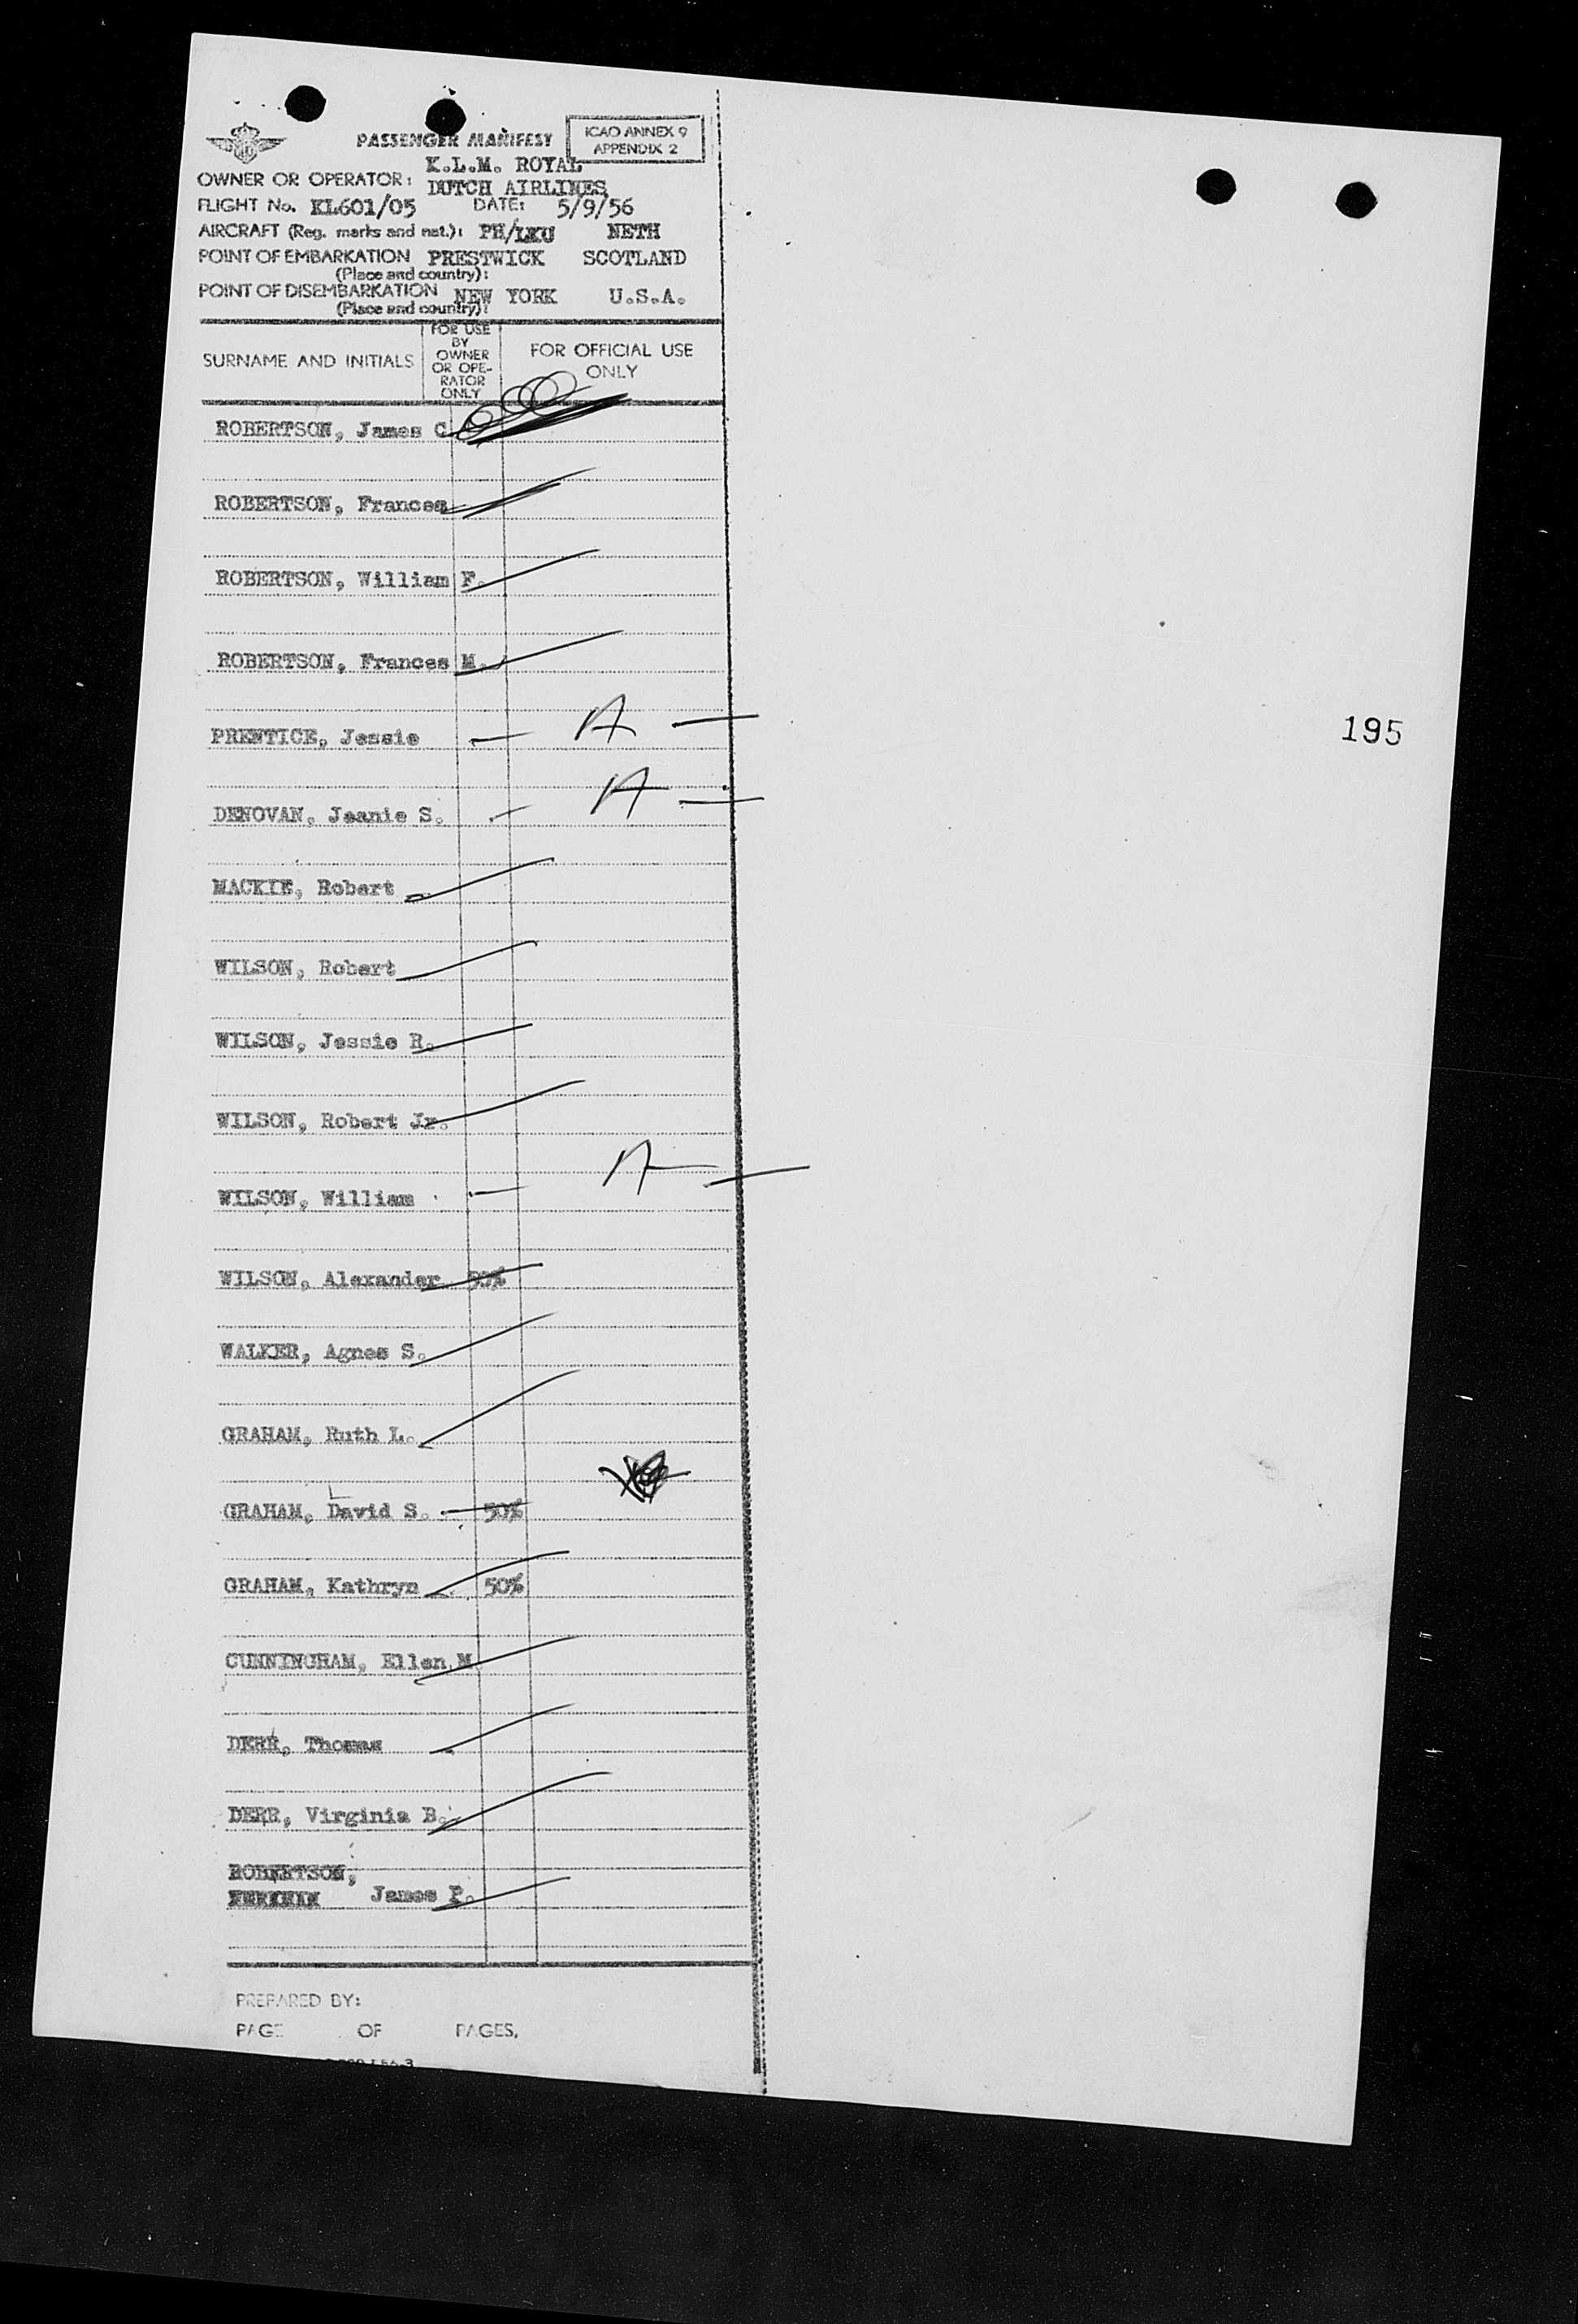 PASSENGER MANIFEST
ICAO ANNEX 9
APPENDIX 2
OWNER OR OPERATOR: K.L.M. ROYAL
DUTCH AIRLINES
FLIGHT No. KL601/05 DATE: 5/9/56
AIRCRAFT (Reg. marks and nat.): PH/LKU NETH
POINT OF EMBARKATION PRESTWICK SCOTLAND
(Place and country):
POINT OF DISEMBARKATION NEW YORK U.S.A.
(Place and country):
SURNAME AND INITIALS
FOR USE
BY
OWNER
OR OPE-
RATOR
ONLY
FOR OFFICIAL USE
ONLY
ROBERTSON, James C.
ROBERTSON, Frances
ROBERTSON, William F.
ROBERTSON, Frances M.
PRENTICE, Jessie A
DENOVAN, Jeanie S. A
195
MACKIE, Robert
WILSON, Robert
WILSON, Jessie R.
WILSON, Robert Jr.
WILSON, William A
WILSON, Alexander
WALKER, Agnes S.
GRAHAM, Ruth L.
GRAHAM, David S. 50%
GRAHAM, Kathryn 50%
CUNNINGHAM, Ellen M.
DERR, Thomas
DERR, Virginia B.
ROBERTSON,
James P.
PREPARED BY:
PAGE OF PAGES.